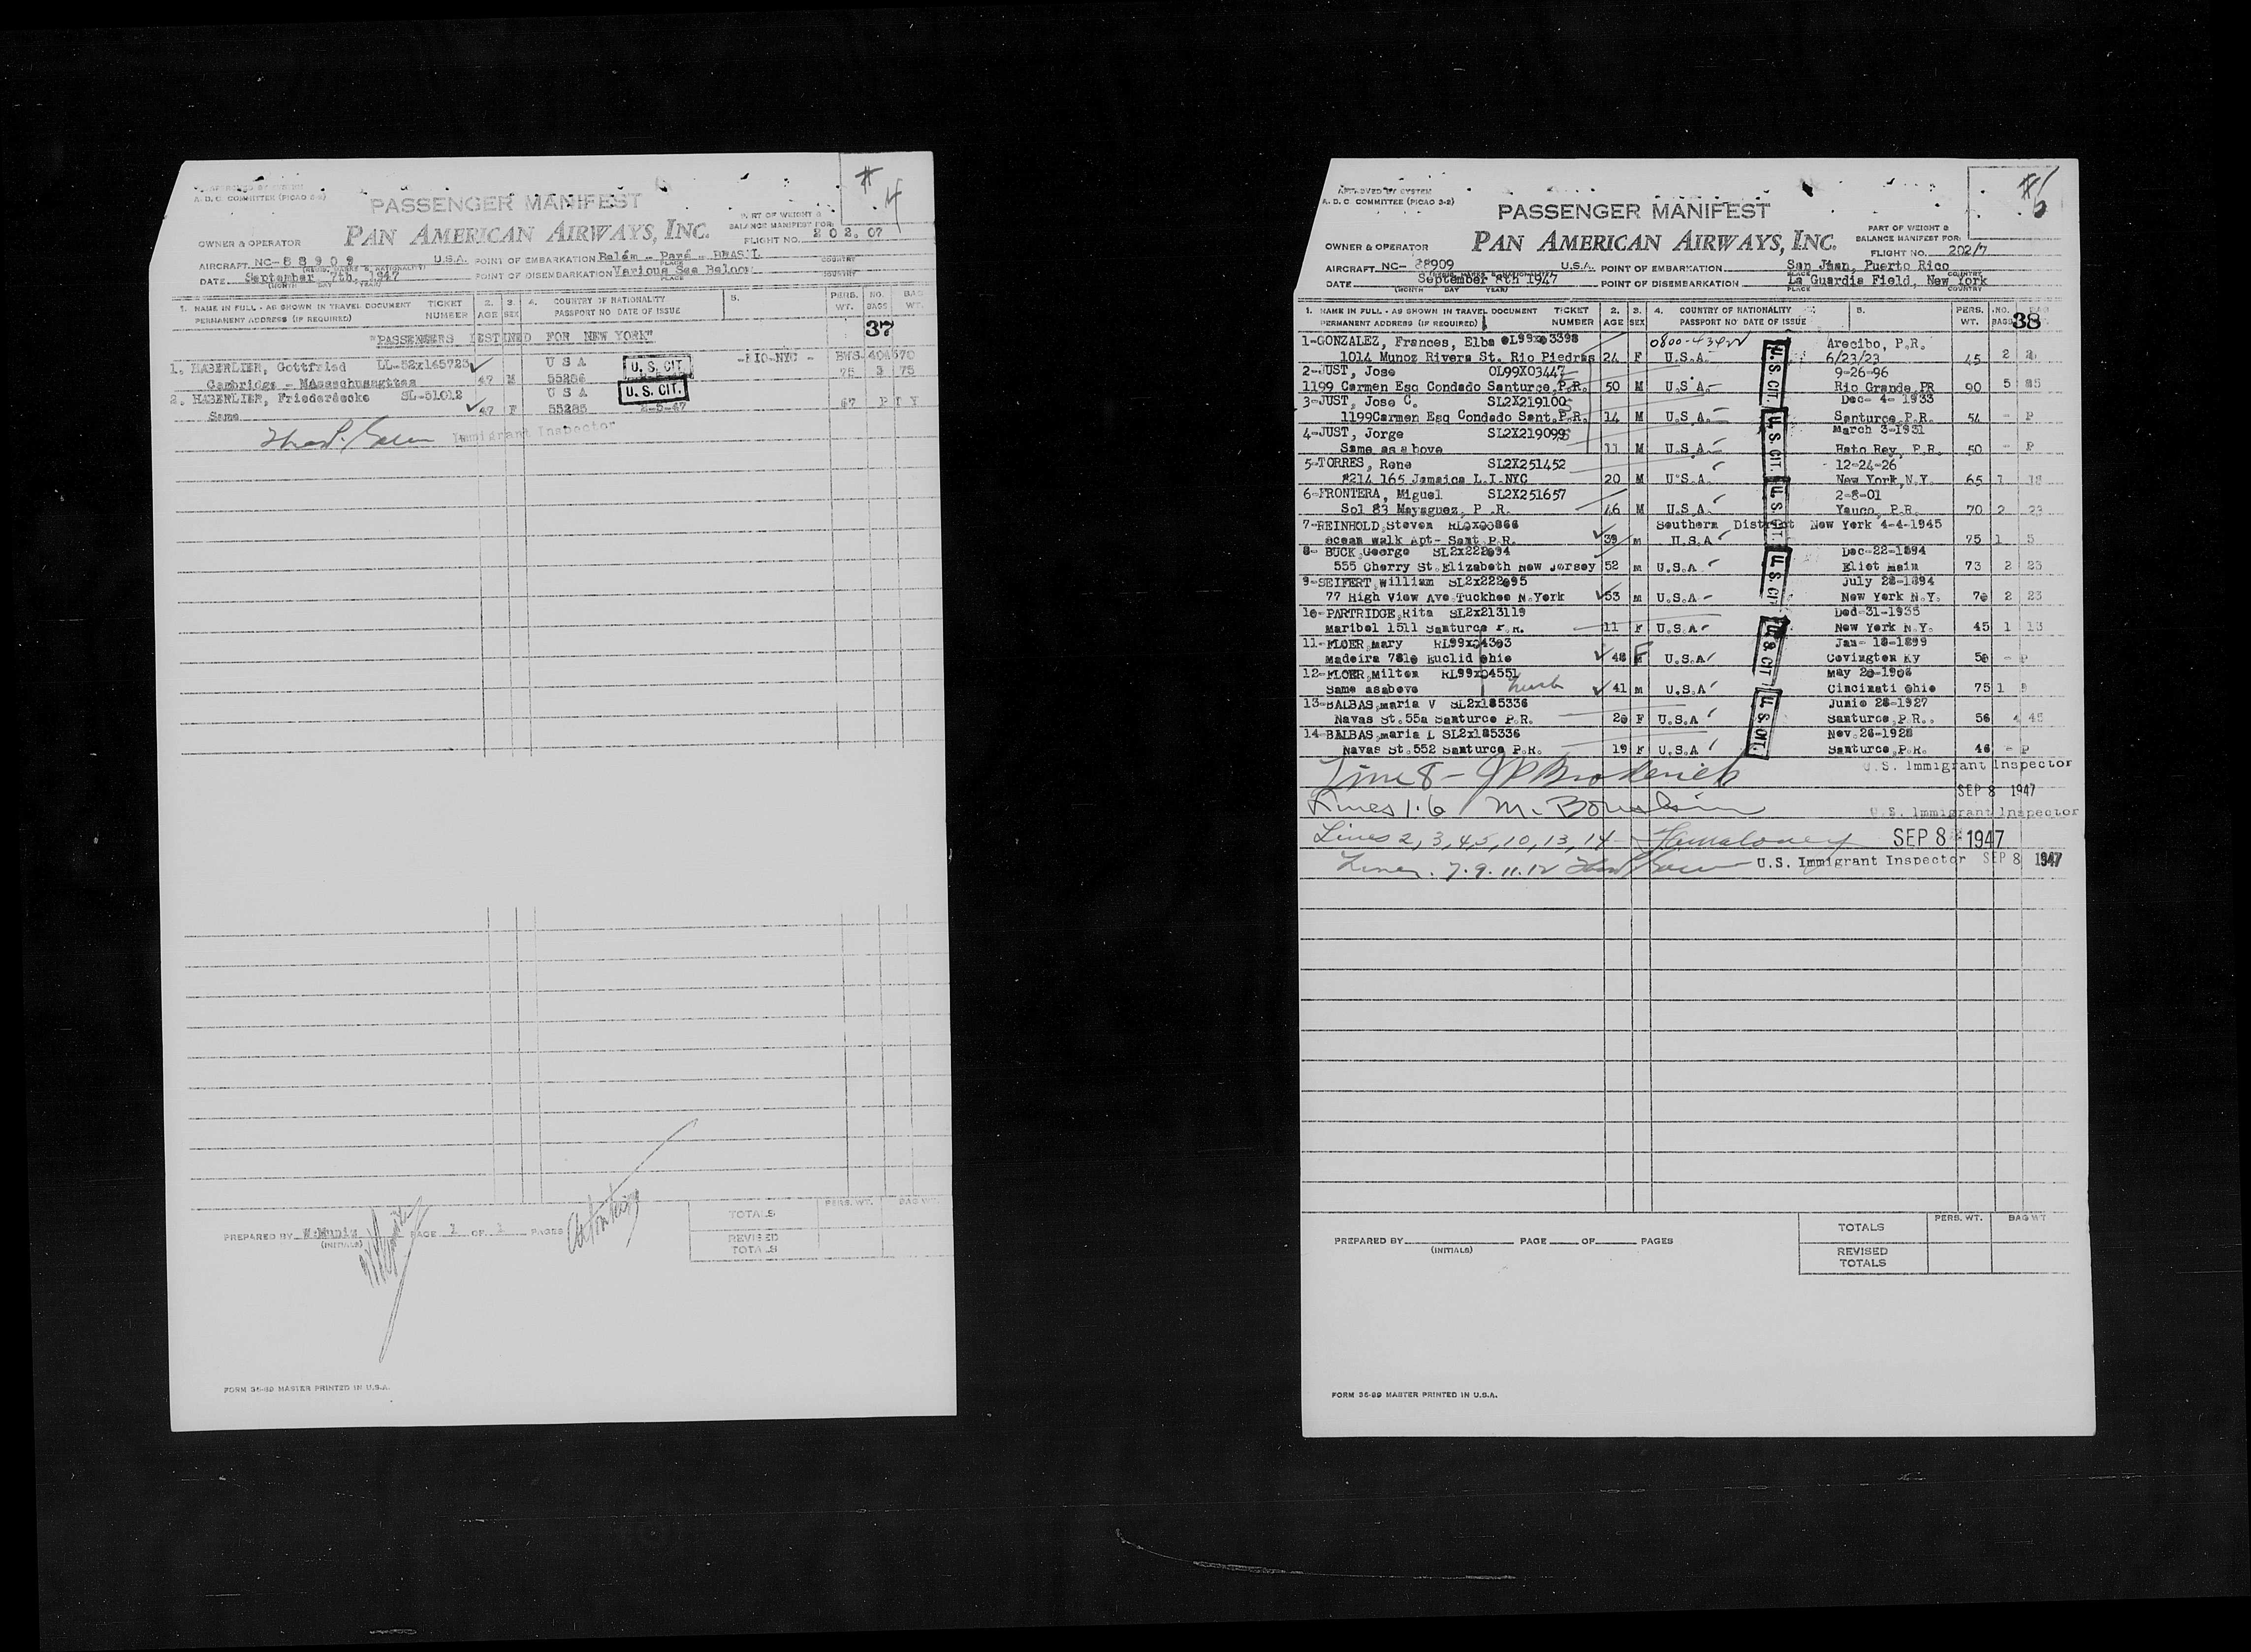 A. D. C. COMMITTEE (PICAO 3-2)
# 4
PASSENGER MANIFEST
PART OF WEIGHT &
BALANCE MANIFEST FOR:
PAN AMERICAN AIRWAYS, INC.
FLIGHT NO. 202.07
OWNER & OPERATOR
AIRCRAFT NC-88909 U.S.A. POINT OF EMBARKATION Belém - Pará - BRASIL
DATE September 7th. 1947 POINT OF DISEMBARKATION Various See Below
(MONTH DAY YEAR) PLACE COUNTRY
1. NAME IN FULL - AS SHOWN IN TRAVEL DOCUMENT TICKET 2. 3. 4. COUNTRY OF NATIONALITY 5. PERS. NO. BAG
PERMANENT ADDRESS (IF REQUIRED) NUMBER AGE SEX PASSPORT NO DATE OF ISSUE WT. BAGS WT.
37
"PASSENGERS DESTINED FOR NEW YORK"
1. HABERLIER, Gottfried LL-52x165723 U S A U. S. CIT. -RIO-NYC -
Cambridge - Massachusagttes 47 M 55286 75 3 75
2. HABERLIER, Friederiecke SL-51012 U S A U. S. CIT.
Same 47 F 55285 2-5-47 67
Immigrant Inspector
TOTALS PERS. WT. BAG WT.
PREPARED BY W.Muniz PAGE 1 OF 1 PAGES
(INITIALS)
REVISED
TOTALS
FORM 36-89 MASTER PRINTED IN U.S.A.
APPROVED BY SYSTEM
A. D. C. COMMITTEE (PICAO 3-2)
#6
PASSENGER MANIFEST
PART OF WEIGHT &
BALANCE MANIFEST FOR:
PAN AMERICAN AIRWAYS, INC.
FLIGHT NO. 202/7
OWNER & OPERATOR
AIRCRAFT NC- 88909 U.S.A. POINT OF EMBARKATION San Juan, Puerto Rico
DATE September 8th 1947 POINT OF DISEMBARKATION La Guardia Field, New York
(MONTH DAY YEAR) PLACE COUNTRY
1. NAME IN FULL - AS SHOWN IN TRAVEL DOCUMENT TICKET 2. 3. 4. COUNTRY OF NATIONALITY 5. PERS. NO.
PERMANENT ADDRESS (IF REQUIRED) NUMBER AGE SEX PASSPORT NO DATE OF ISSUE WT. BAGS 38
1-GONZALEZ, Frances, Elba OL99x03398 Arecibo, P.R.
1014 Munoz Rivera St. Rio Piedras 24 F U.S.A. 6/23/23 45 2
2-JUST, Jose OL99X03447 9-26-96
1199 Carmen Esq Condado Santurce P.R. 50 M U.S.A. Rio Grande PR 90 5
3-JUST, Jose C. SL2X219100 Dec- 4- 1933
1199Carmen Esq Condado Sant.P.R. 14 M U.S.A. Santurce P.R. 54 - P
4-JUST, Jorge SL2X219099 March 3-1931
Same as above 11 M U.S.A. Hato Rey, P.R. 50 - P
5-TORRES, Rene SL2X251452 12-24-26
8214 165 Jamaica L.I.NYC 20 M U.S.A. New York,N.Y. 65 1
6-FRONTERA, Miguel SL2X251657 2-8-01
Sol 83 Mayaguez, P.R. 46 M U.S.A. Yauco, P.R. 70 2 23
7-REINHOLD,Steven RL0x00866 Southern District New York 4-4-1945
ocean walk Apt- Sant P.R. 39 m U.S.A 75 1 5
8- BUCK,George SL2x222094 Dec-22-1894
555 Cherry St.Elizabeth New Jersey 52 m U.S.A Eliot Main 73 2 23
9-SEIFERT,William SL2x222095 July 28-1894
77 High View Ave.Tuckhoe N.York 53 m U.S.A New York N.Y. 70 2 23
10-PARTRIDGE,Rita SL2x213119 Ded-31-1935
Maribel 1511 Santurce P.R. 11 F U.S.A New York N.Y. 45 1 13
11-FLOER,Mary RL99x04303 Jan- 18-1899
Madeira 7810 Euclid Ohio 48 F U.S.A Covington Ky 50 - P
12-FLOER,Milton RL99x04551 May 20-1906
Same asabove husb 41 m U.S.A Cincinati Ohio 75 1
13-BALBAS,maria V SL2x185336 Junio 28-1927
Navas St.55a Santurce P.R. 20 F U.S.A Santurce,P.R.. 56 4 45
14-BALBAS,maria L SL2x185336 Nov.26-1928
Navas St.552 Santurce P.R. 19 F U.S.A Santurce,P.R. 46 - P
U. S. CIT. U. S. CIT. U. S. CIT. U. S. CIT. U. S. CIT. U. S. CIT.
Line 8 - JP Broderick U.S. Immigrant Inspector
SEP 8 1947
Lines 1.6 U.S. Immigrant Inspector
Lines 2, 3, 4,5, 10, 13, 14 - SEP 8 1947
Lines. 7.9.11.12 U.S. Immigrant Inspector SEP 8 1947
TOTALS PERS. WT. BAG WT
PREPARED BY PAGE OF PAGES
(INITIALS)
REVISED
TOTALS
FORM 36-89 MASTER PRINTED IN U.S.A.